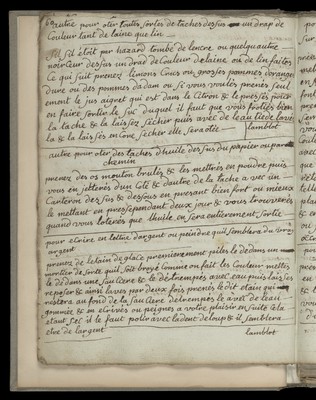 autre pour oter toutes sortes de taches dessus un drap de
Couleur tant de laine que lin
Sil sétoit par hazard tombé de lencre ou quelqu autre
noirceur dessus un drap de Couleur de laine ou de lin faites
Ce qui suit prenez limons Crus ou grosses pommes dorange
Dune ou des pommes dadam ou si vous voulez prenez seul
ement le jus aigret qui est dans le Citron & le pressez pour
en faire sortir le suc duquel il faut que vous frottiez bien
la tache & la laissez secher puis avec de leau tiede lavez
la & la laisses encore secher elle sera otée lamblot
autre pour oter des taches dhuile dessus du papier ou par
chemin
prenez des os mouton brulés & les mettrés en poudre puis
vous en jetterés dun Coté & dautre de la tache avec un
Carteron dessus & dessous en pressant bien fort ou mieux
le mettant en presse pendant deux jour & vous trouverrés
quand vous loterés que lhuile en sera entierement sortie
pour ecrire en lettre dargent ou peindre qui semblera du vray
argent
prenez de letain de glace premierement pilés le dedans un
mortier de sorte quil soit broyé Comme on fait les Couleur mettes
le dedans une saucere & le détrempés avec eau puis laisses
reposer & ainsi lavés par deux fois prenés le dit etain qui
restera au fond de la saucere detrempés le avec de leau
gommée & en ecrivés ou peignes a votre plaisir ensuite Cela
etant sec il le faut polir avec la dent de loup & il semblera
etre de largent lamblot